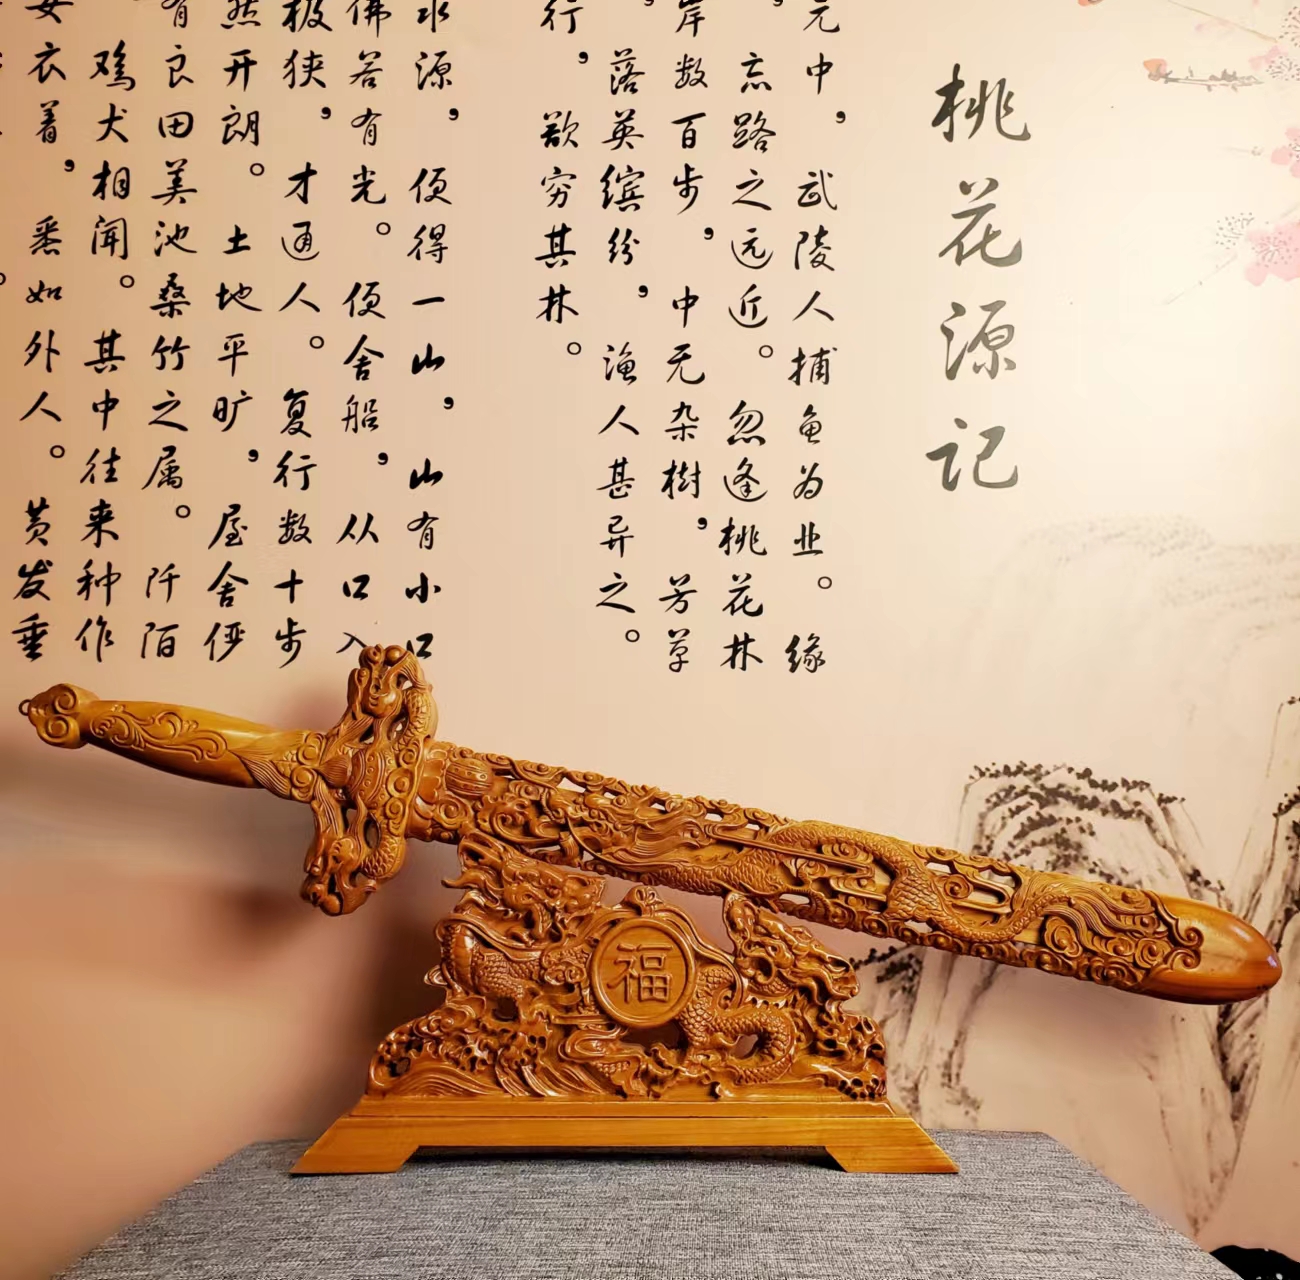 桃花源记
元中，武陵人捕鱼为业。缘
，忘路之远近。忽逢桃花林
岸数百步，中无杂樹，芳草
，落英缤纷，渔人甚异之。
行，欲穷其林。
水源，便得一山，山有小口
佛若有光。便舍船，从口入
极狭，才通人。复行数十步
然开朗。土地平旷，屋舍俨
有良田美池桑竹之属。阡陌
鸡犬相闻。其中往来种作
女衣着，悉如外人。黄发垂
福